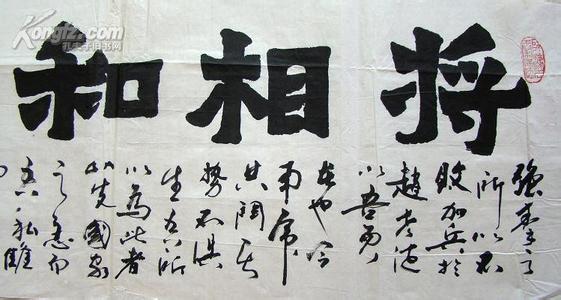 将相和
强秦之
所以不
敢加兵於
趙者徒
以吾两人
在也今
两虎
共鬪其
势不俱
生吾所
以為此者
以先國家
之急而
后私雠
Kongfz.com
孔夫子旧书网